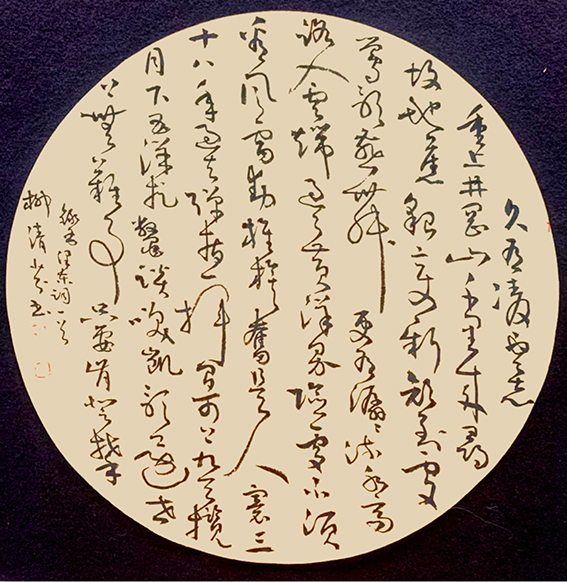 久有凌云志
重上井冈山千里来尋
故地舊貌变新颜到處
莺歌燕舞更有潺潺流水高
路入雲端過了黄洋界險處不須
看風雷動旌旗奮是人寰三
十八年過去彈指一挥間可上九天揽
月下五洋捉鳖談笑凯歌還世
上無難事只要肯登攀
錄毛泽东词一首
柳清书